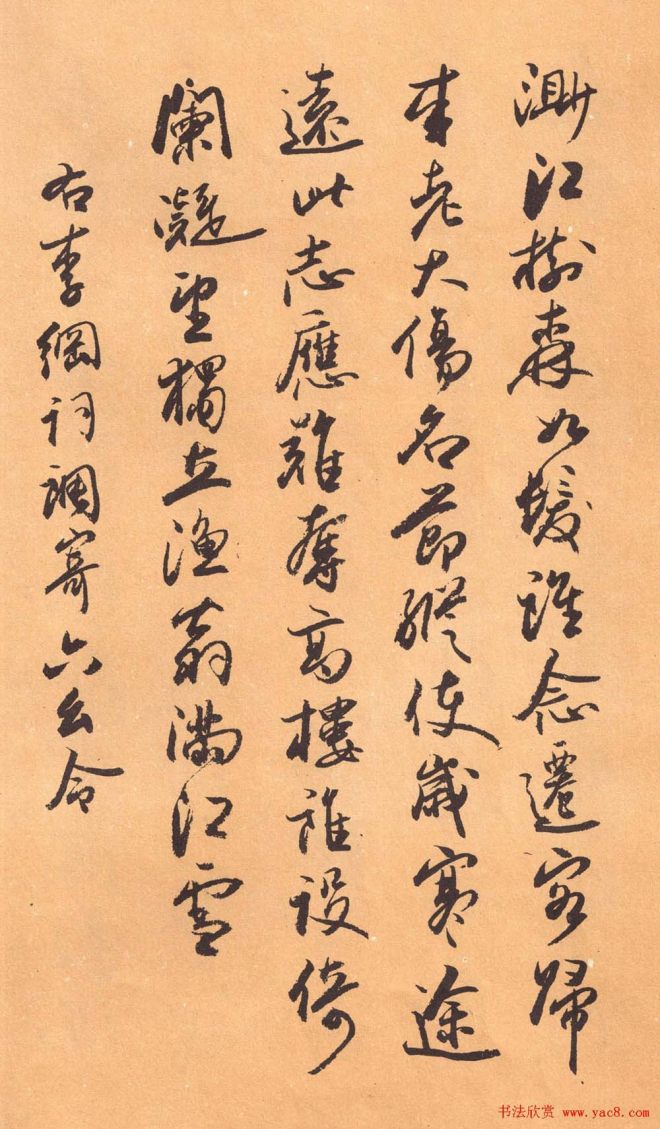 渺江樹森如髮誰念遷客歸
来老大傷名節縱使歲寒途
遠此志應難奪高樓誰設倚
闌凝望獨立漁翁滿江雪
右李綱詞調寄六幺令
书法欣赏 www.yac8.com